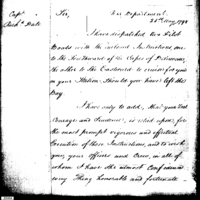 Capt
Richd Dale
Sir,
War Department.
I have dispatched two Pilot
Boats with the inclosed Instructions, one
to the Southward of the Capes of Delaware,
the other to the Eastward to
Station, should you have left the
Bay.
I have only to add, that your
Courage and Prudence, is relied upon, for
the most prompt exposure and effectual
Execution of these Instructions, and to wish
you, your Officers and Crew, in all of
whom I have the utmost Confidence
every Thing honorable and fortunate.